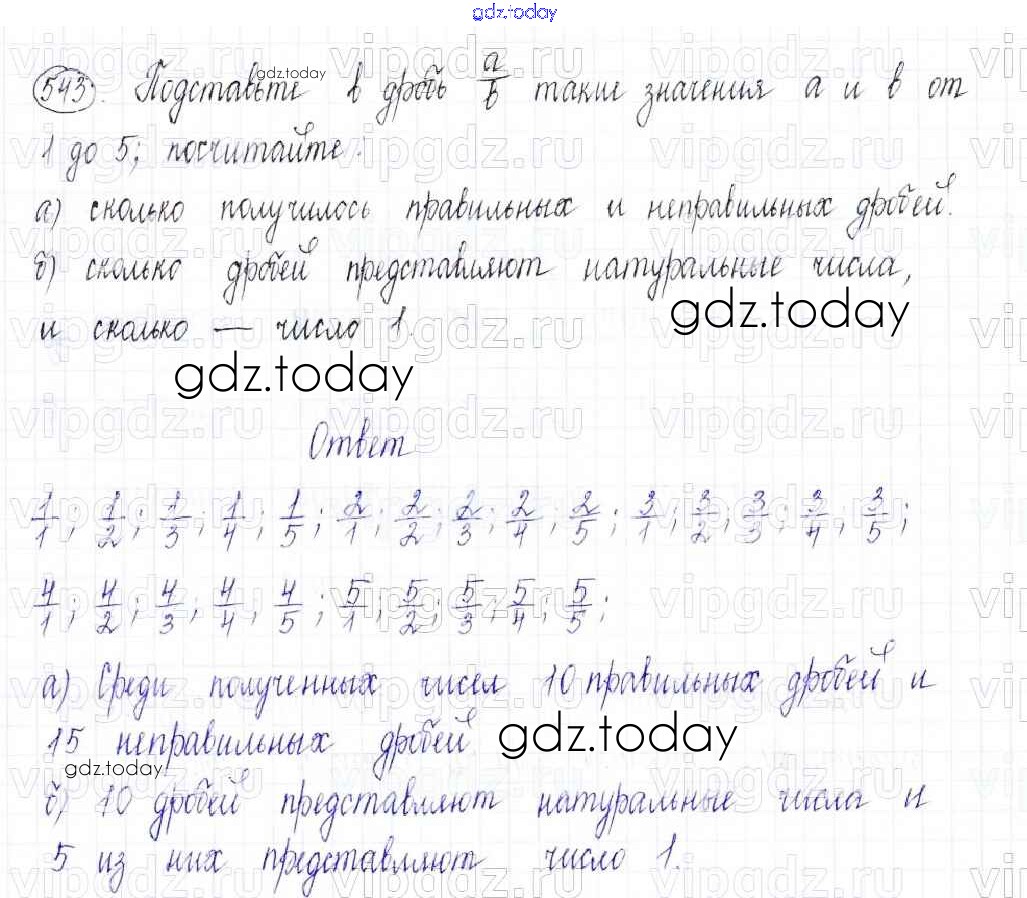 gdz.today
543. Подставьте в дробь a/b такие значения a и b от
gdz.today
1 до 5; посчитайте:
а) сколько получилось правильных и неправильных дробей.
б) сколько дробей представляют натуральные числа,
и сколько — число 1.
gdz.today
gdz.today
Ответ
1/1; 1/2; 1/3; 1/4; 1/5; 2/1; 2/2; 2/3; 2/4; 2/5; 3/1; 3/2; 3/3; 3/4; 3/5;
4/1; 4/2; 4/3; 4/4, 4/5; 5/1; 5/2; 5/3, 5/4; 5/5;
а) Среди полученных чисел 10 правильных дробей и
15 неправильных дробей
gdz.today
gdz.today
б) 10 дробей представляют натуральные числа и
5 из них представляют число 1.
vipgdz.ru